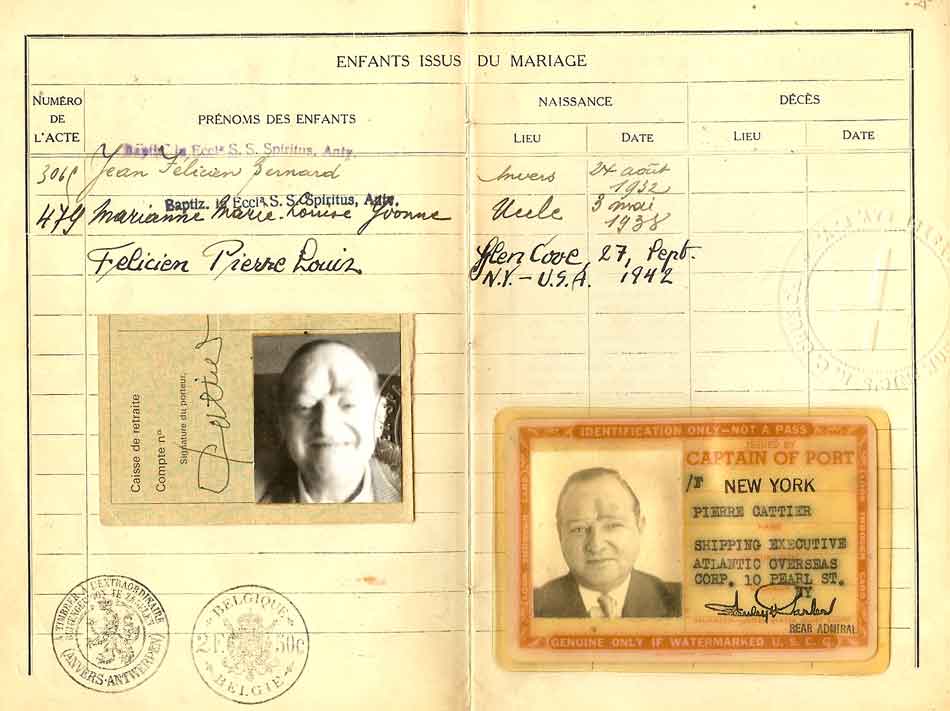 ENFANTS ISSUS DU MARIAGE
NUMÉRO DE L'ACTE
PRÉNOMS DES ENFANTS
NAISSANCE
DÉCÈS
LIEU
DATE
LIEU
DATE
Baptiz. in Eccla S. S. Spiritus, Antv.
Jean Félicien Bernard
Anvers
24 août
1932
Baptiz. in Eccla S. S. Spiritus, Antv.
479
Marianne Marie Louise Yvonne
Uccle
3 mai
1938
Felicien Pierre Louis
Glen Cove,
27, Sept.
N.Y. - U.S.A.
1942
Caisse de retraite
Compte n°
Signature du porteur,
Cattier
IDENTIFICATION ONLY—NOT A PASS
ISSUED BY
CAPTAIN OF PORT
/F NEW YORK
PIERRE CATTIER
NAME
SHIPPING EXECUTIVE
ATLANTIC OVERSEAS
CORP. 10 PEARL ST.
NY
REAR ADMIRAL
GENUINE ONLY IF WATERMARKED U. S. C. G.
(ANVERS-ANTWERPEN)
BELGIQUE
2F 50c
BELGIË